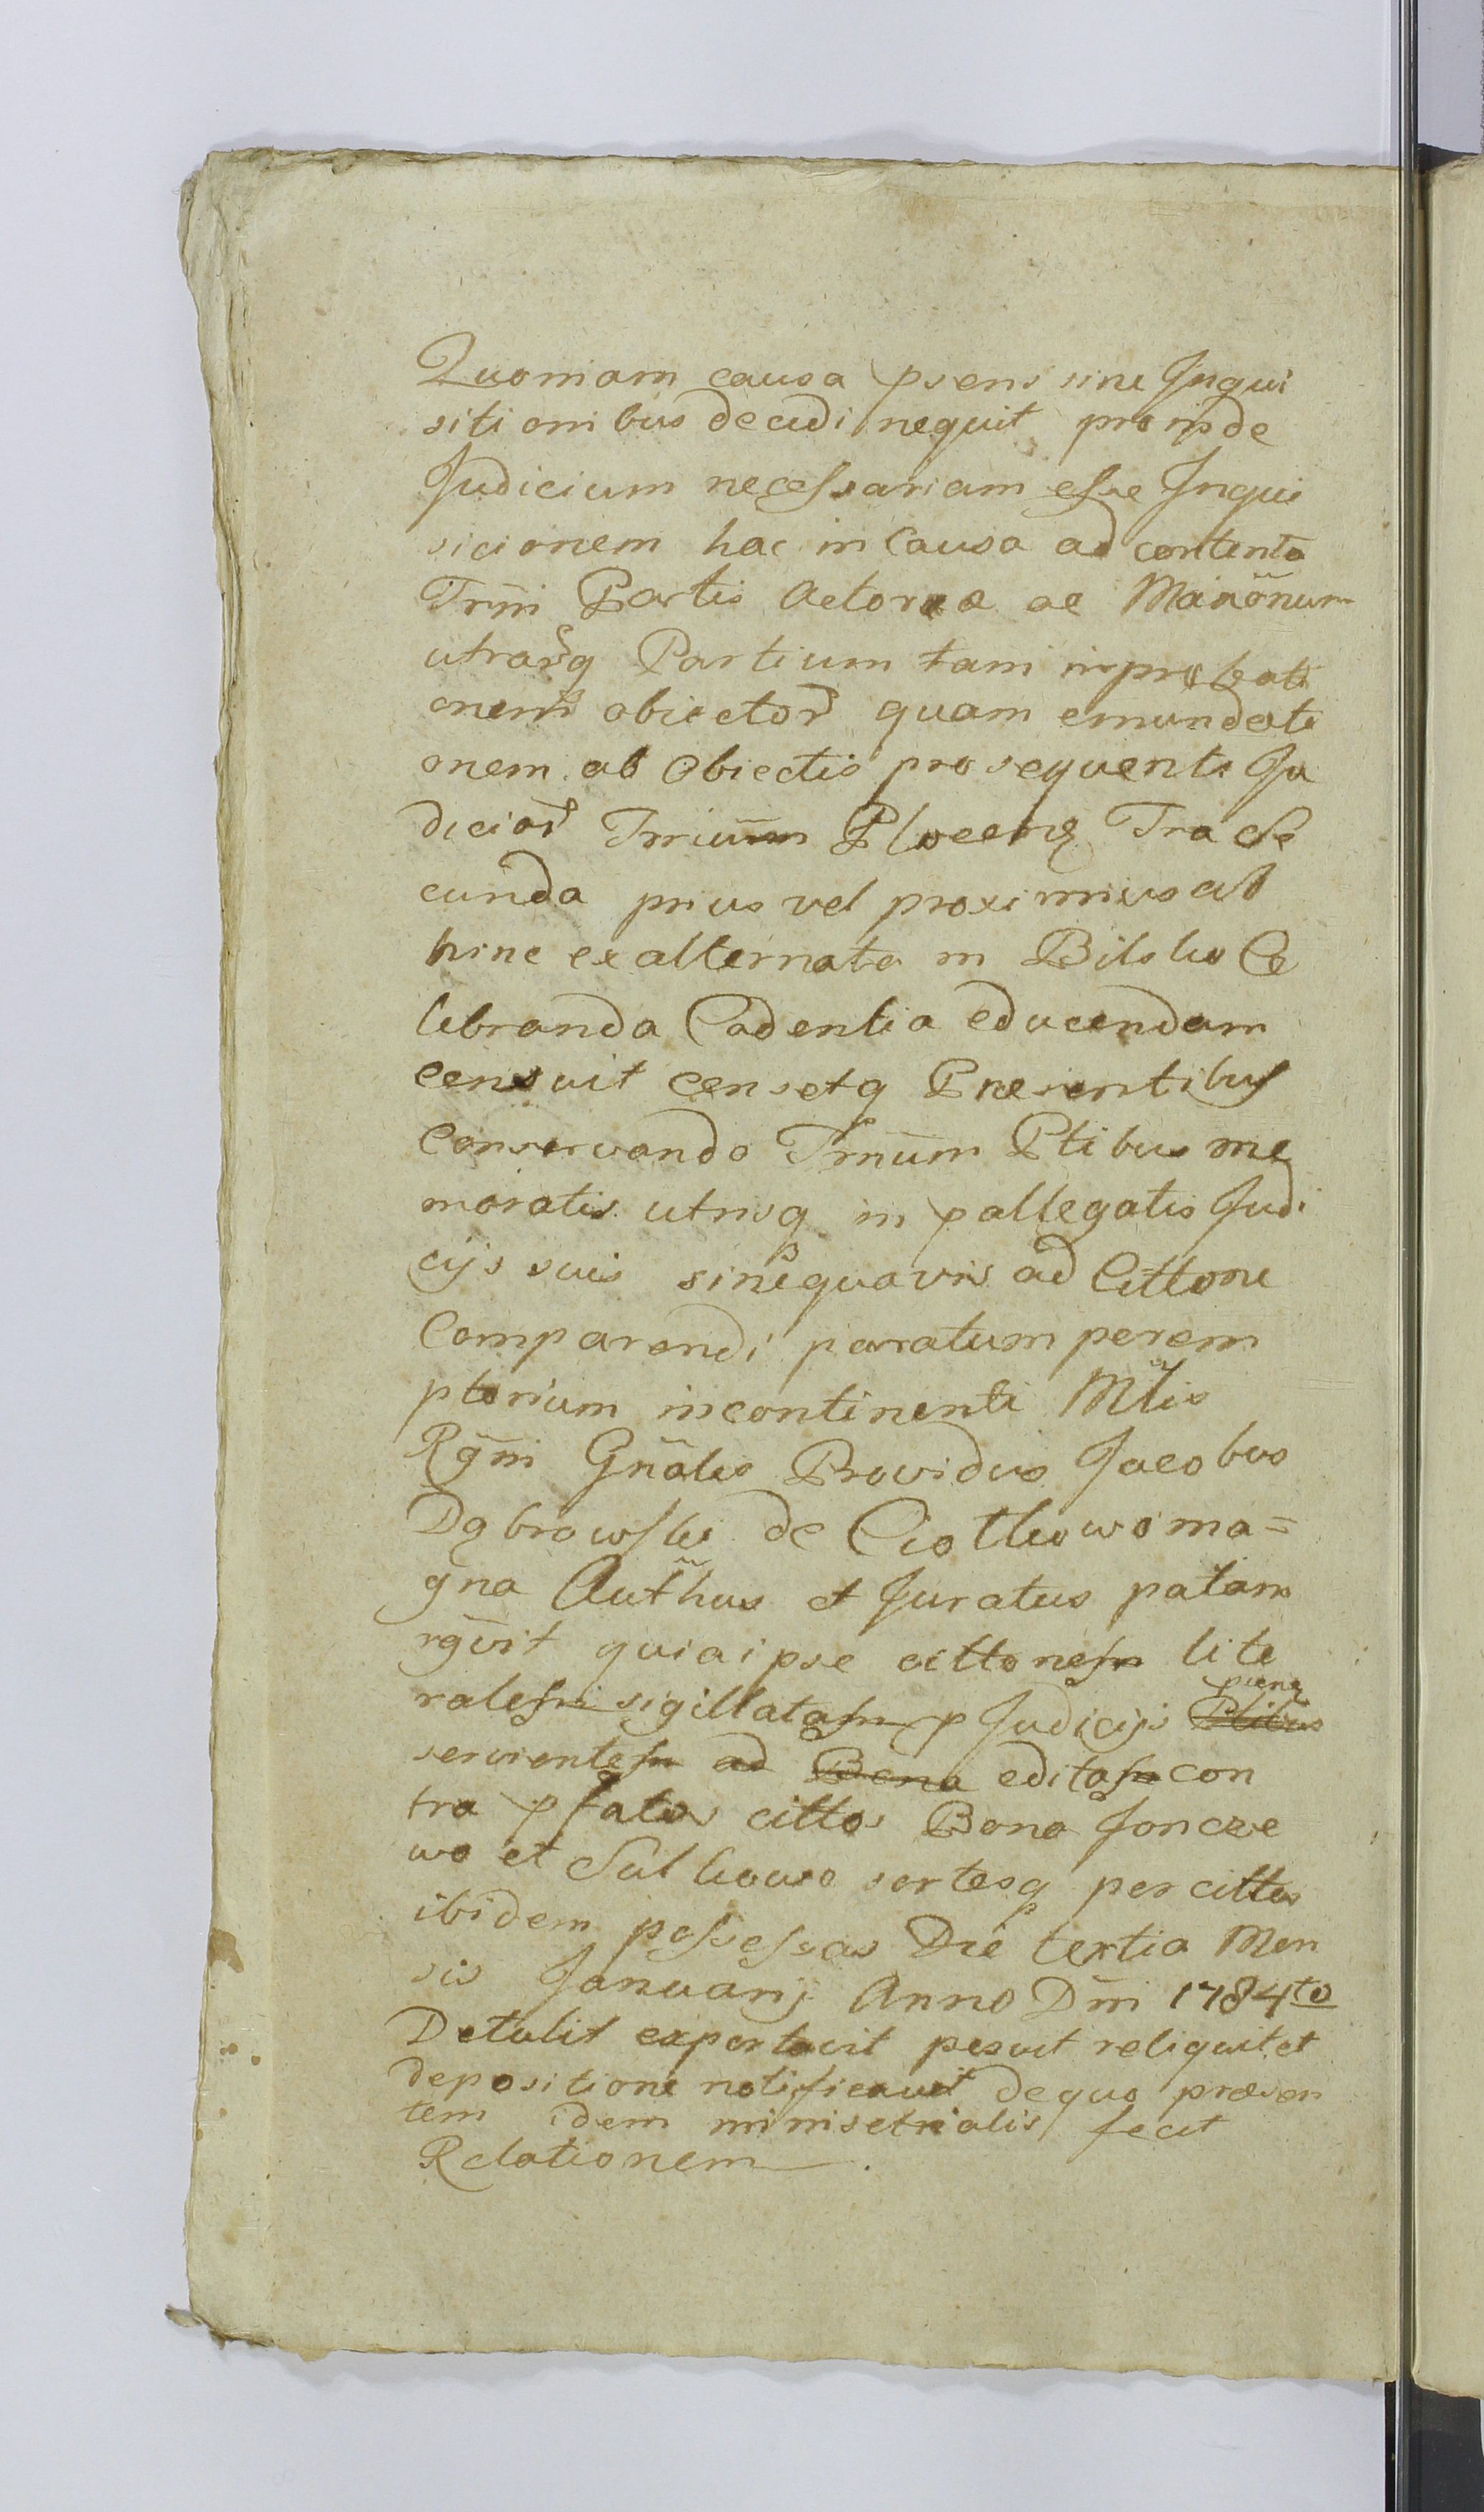 Quoniam causa psens sine Inqui
sitionibus decidi nequit proinde
Judicium necessariam esse Inqui
sicionem hac in Causa ad contenta
Trm̃i Partis Actorea ac Manõnum
utrarq Partium tam inprobati
onem obiector quam emundati
onem ab Obiectis prosequenti Ju
dicior Trrium Plocen Tra de
cunda prius vel proximius ab
hinc ex alternata in Bilsko Ce
lebranda Cadentia educendam
censuit censetq Presentibus
Conservando Trnum Ptibus me
moratis utrisq in pallegatis Judi
cijs suis sine quavis ad Cittone
Comparendi paratum perem
ptorium incontinenti Mtlis
Rgñi Gñalis Providus Jacobus
Dąbrowski de Ciotkowo ma=
gna Authus et Juratus palam
rgvit quia ipse cittonem lite
ralem sigillatam p Judicijs Ptibus
servientem ad Bona editam con
tra pfatos cittos Bona Joncze
wo et Sulkowo sortesq per cittos
ibidem possessas Die tertia Men
sis Januarij Anno Dm̃i 1784to
Detulit exportavit posuit reliquit et
depositione notificavit de quo præsen
tem idem minisetrialis fecit
Relationem